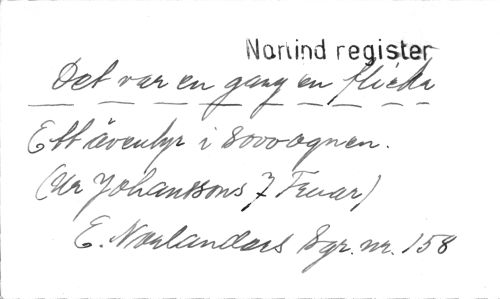 Norlind register
Det var en gang en flicka
Ett äventyr i Sovvagnen.
(Ur Johanssons 7 Fruar)
E. Norlanders Sgr. nr. 158